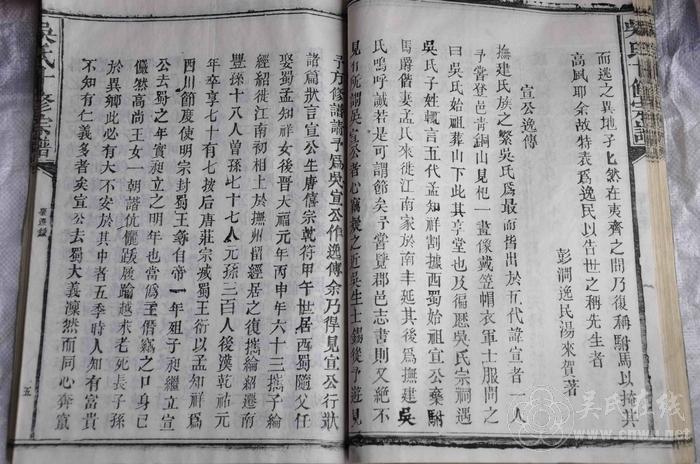 吳氏十修宗譜
而逃之異地予比然在夷齊之間乃復稱駙馬以掩其
高風耶余故特表爲逸民以告世之稱先生者
彭澗逸民湯來賀著
宣公逸傳
撫建氏族之繁吳氏爲最而指出於五代諱宣者一人
予嘗登邑青銅山見祀一畫像戴笠帽衣軍士服問之
曰吳氏始祖葬山下此其享堂也及徧歷吳氏宗祠遇
吳氏子姓輒言五代孟知祥割據西蜀始祖宣公棄駙
馬爵偕妻孟氏來徙江南家於南丰延其後爲撫建吳
氏嗚呼誠若是可謂節矣予嘗覽郡邑志書則又絶不
見有所謂吳宣公者心竊疑之近吳生士錫從予遊見
予方修譜請予爲吳宣公作逸傳余乃得見宣公行狀
諸篇狀言宣公生唐僖宗乾符甲午世居西蜀隨父任
娶蜀孟知祥女後晋天福元年丙申年六十三携子綸
經紹徙江南初相上於撫州留經居之復攜綸紹遷南
豐孫十八人曾孫七十七人元孫三百人後漢乾祐元
年卒享七十有七按后唐莊宗滅蜀王衍以孟知祥爲
西川節度使明宗封蜀王尋自帝一年殂子昶繼立宣
公去蜀之年實昶立之明年也當僞王僭竊之日身已
儼然高尚王女一朝諧伉儷踐履踰越來老死長子孫
於異鄉此必有大不安於其中者五季時人知有富貴
不知有仁義多者矣宣公去蜀大義凜然而同心奔竄
吳氏十修宗譜
五
吴氏在线
www.cnwu.net